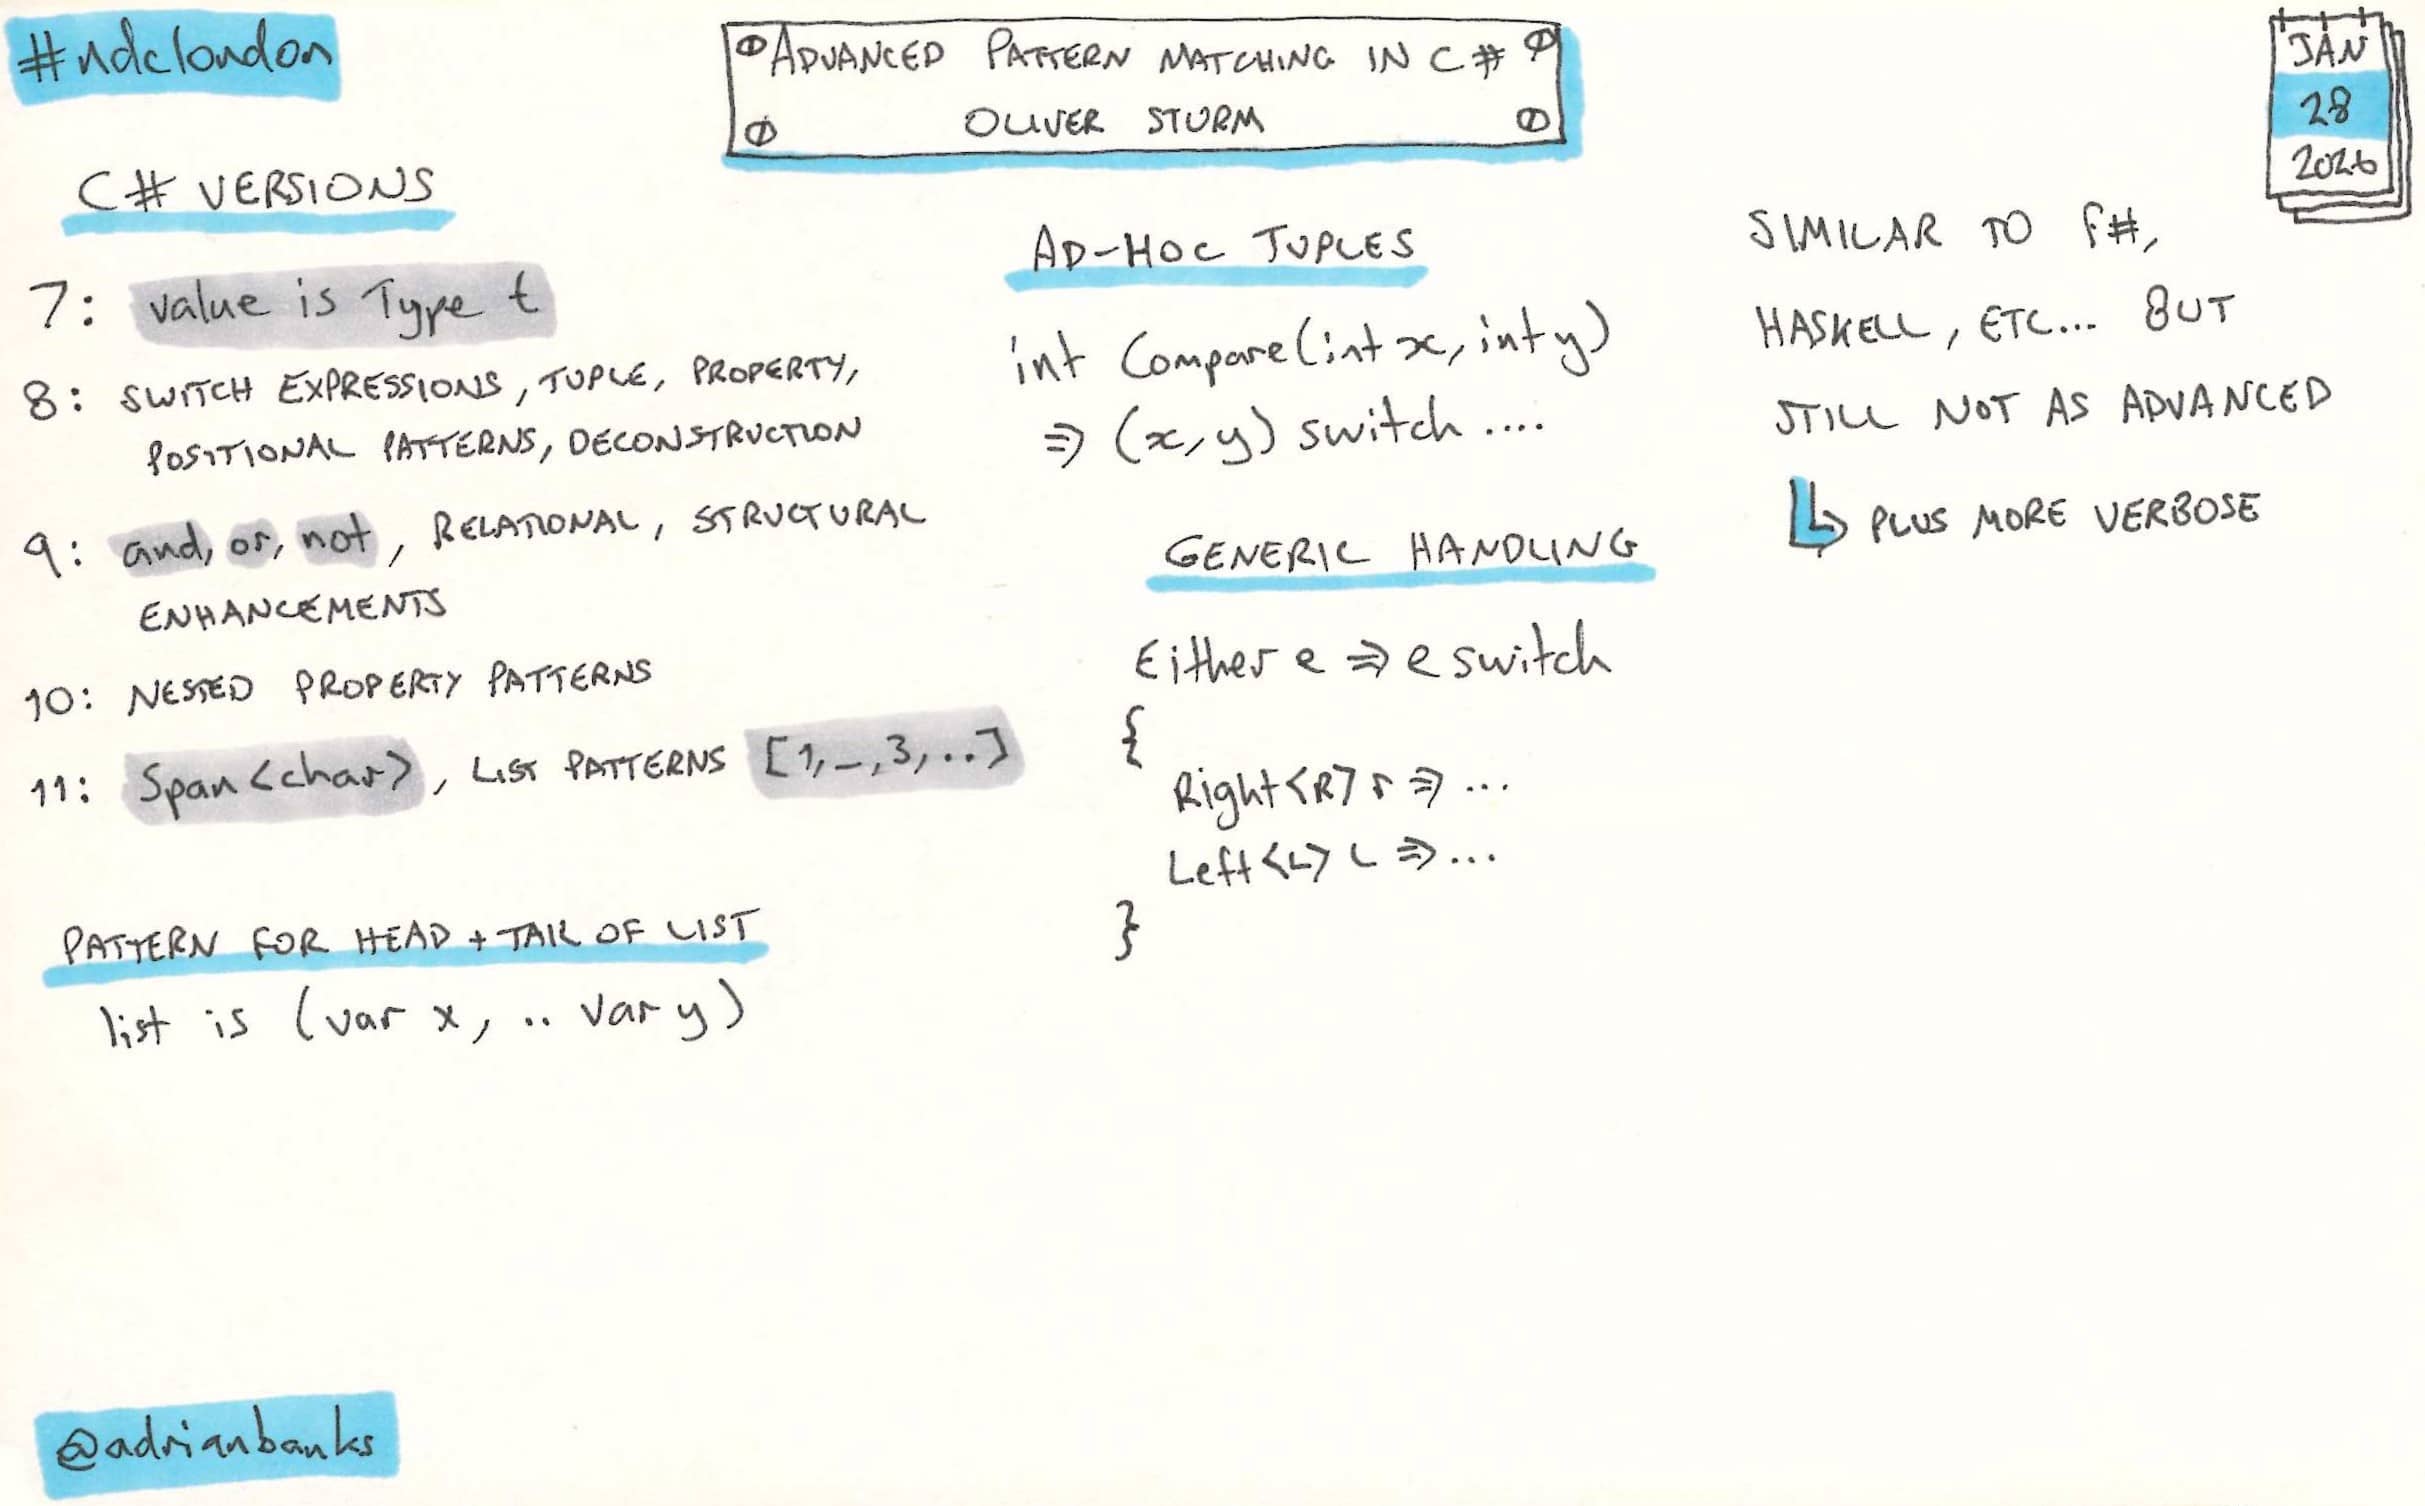 #ndclondon
ADVANCED PATTERN MATCHING IN C#
OLIVER STURM
JAN
28
2026
C# VERSIONS
7: value is Type t
8: SWITCH EXPRESSIONS, TUPLE, PROPERTY,
POSITIONAL PATTERNS, DECONSTRUCTION
9: and, or, not, RELATIONAL, STRUCTURAL
ENHANCEMENTS
10: NESTED PROPERTY PATTERNS
11: Span<char>, LIST PATTERNS [1,_,3,..]
PATTERN FOR HEAD + TAIL OF LIST
list is (var x, .. var y)
AD-HOC TUPLES
int Compare(int x, int y)
=> (x, y) switch ....
GENERIC HANDLING
Either e => e switch
{
Right<R> r => ...
Left<L> L => ...
}
SIMILAR TO F#,
HASKELL, ETC... BUT
STILL NOT AS ADVANCED
PLUS MORE VERBOSE
@adrianbanks